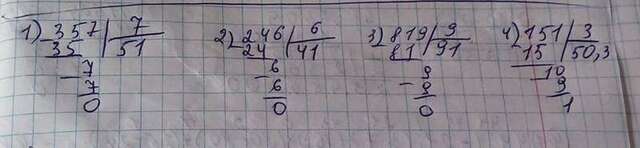 1) 357 | 7
35 | 51
- 7
7
0
2) 246 | 6
24 | 41
- 6
6
0
3) 819 | 9
81 | 91
- 9
9
0
4) 151 | 3
15 | 50,3
- 10
9
1